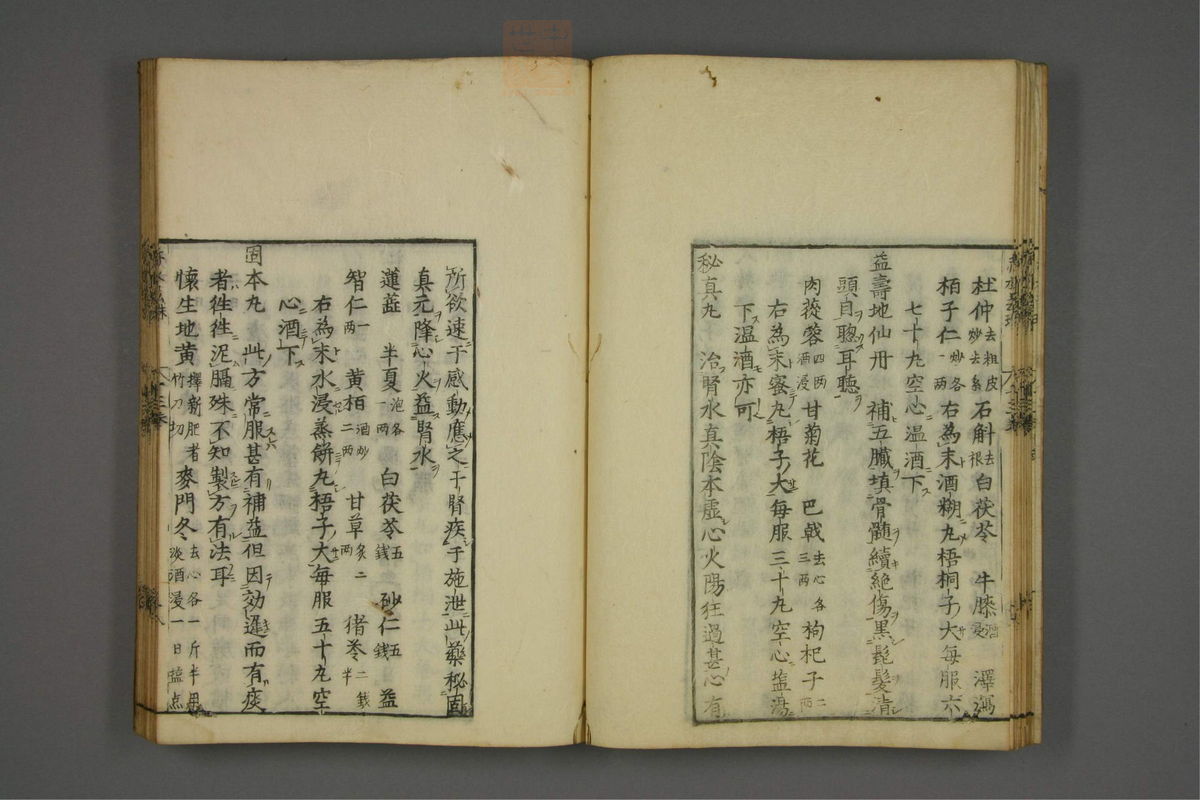 杜仲去粗皮炒去絲石斛去根白茯苓牛膝酒浸澤瀉
栢子仁炒各一両右為末酒糊丸梧桐子大毎服六
七十丸空心温酒下
益壽地仙丹補五臓填骨髓續絶傷黒髭髮清
頭目聡耳聽
肉蓯蓉四両酒浸甘菊花巴戟去心各三両枸杞子二両
右為末蜜丸梧子大毎服三十丸空心塩湯
下温酒亦可
秘真丸治腎水真陰本虚心火陽狂過甚心有
所欲速于感動應之于腎疾于施泄此藥秘固
真元降心火益腎水
蓮蕋半夏泡各一両白茯苓五銭砂仁五銭益
智仁一両黄栢酒炒二両甘草炙二両猪苓二銭半
右為末水浸蒸餅丸梧子大毎服五十丸空
心酒下
固本丸此方常服甚有補益但因効遲而有痰
者徃徃泥膈殊不知製方有法耳
懐生地黄擇新肥者竹刀切麥門冬去心各一斤半用淡酒浸一日